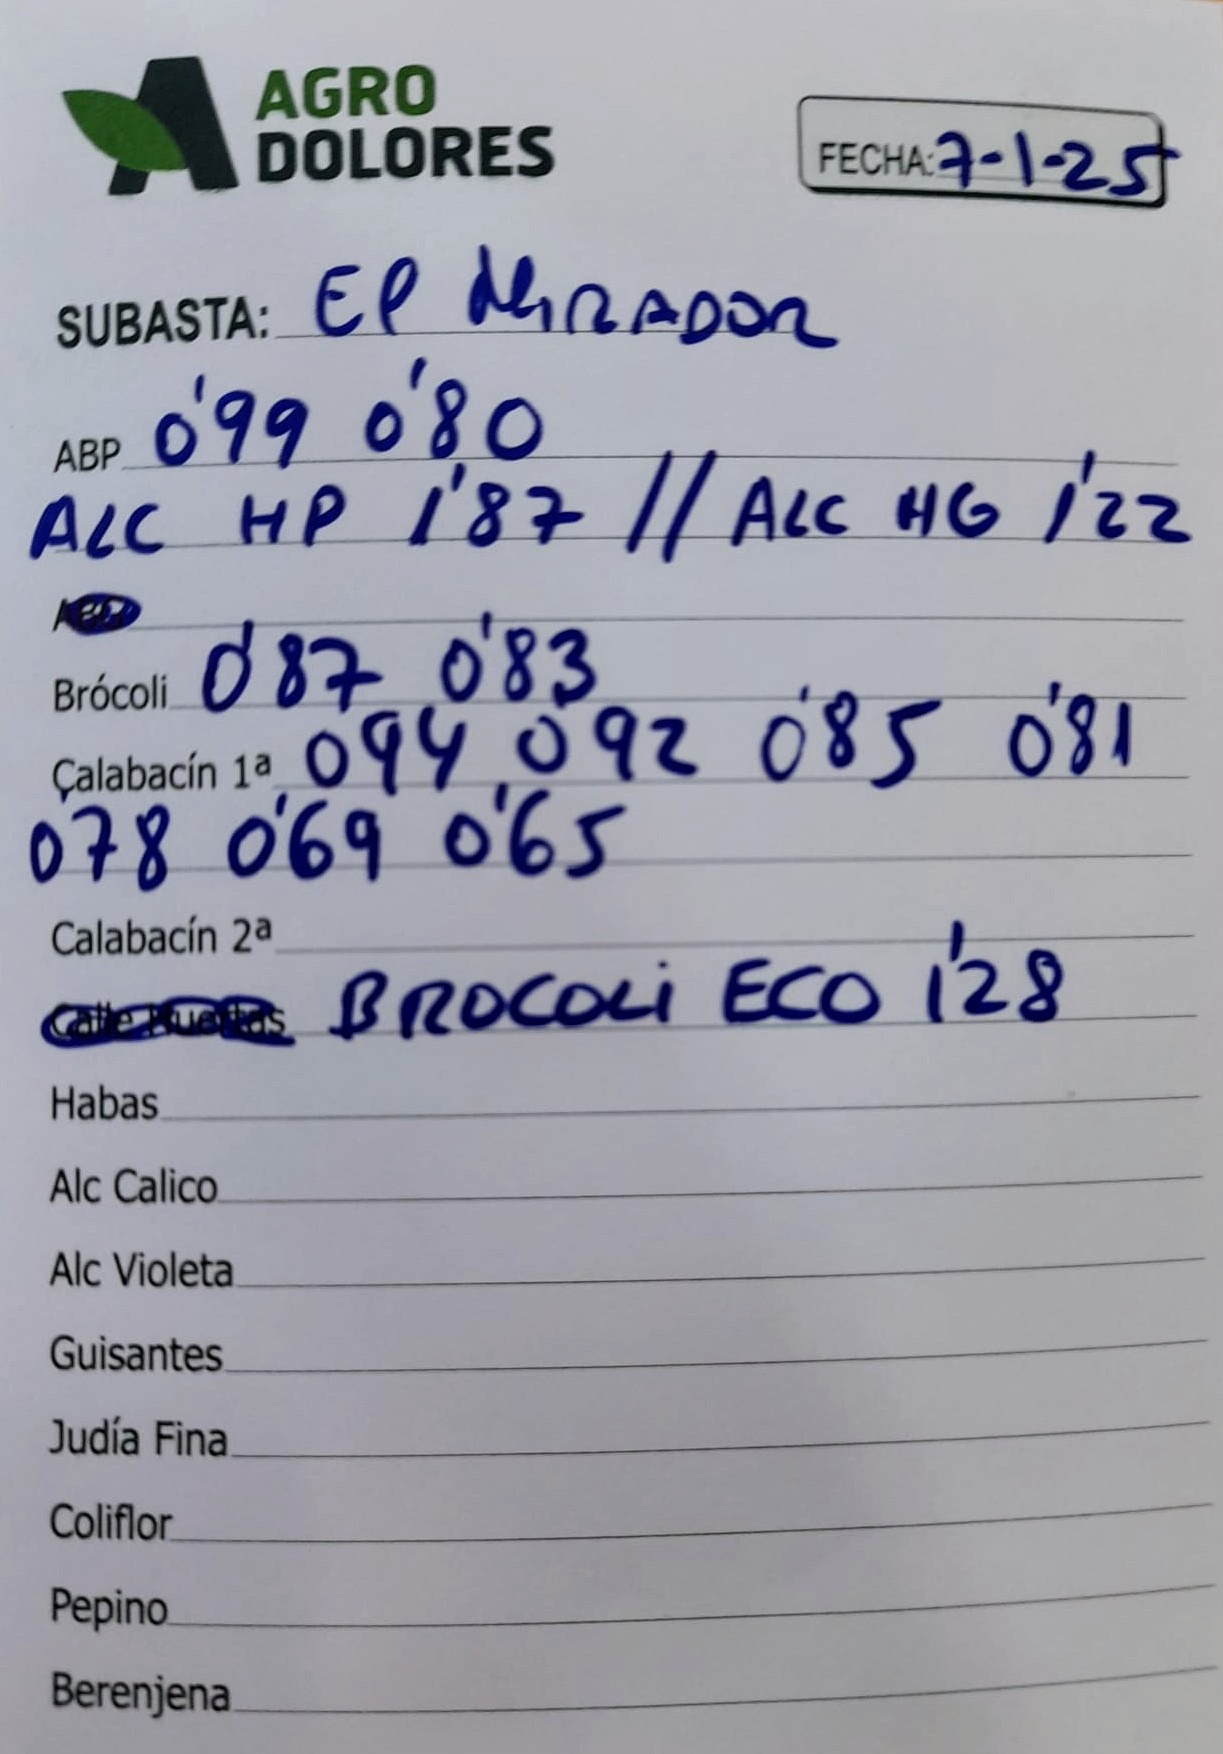 AGRO
DOLORES
FECHA: 7-1-25
SUBASTA: EP MIRADOR
ABP 0'99 0'80
ALC HP 1'87 // ALC HG 1'22
Brócoli 0'87 0'83
Çalabacín 1ª 094 092 0'85 0'81
078 0'69 0'65
Calabacín 2ª
Calle Huertas BROCOLi ECO 1'28
Habas
Alc Calico
Alc Violeta
Guisantes
Judía Fina
Coliflor
Pepino
Berenjena